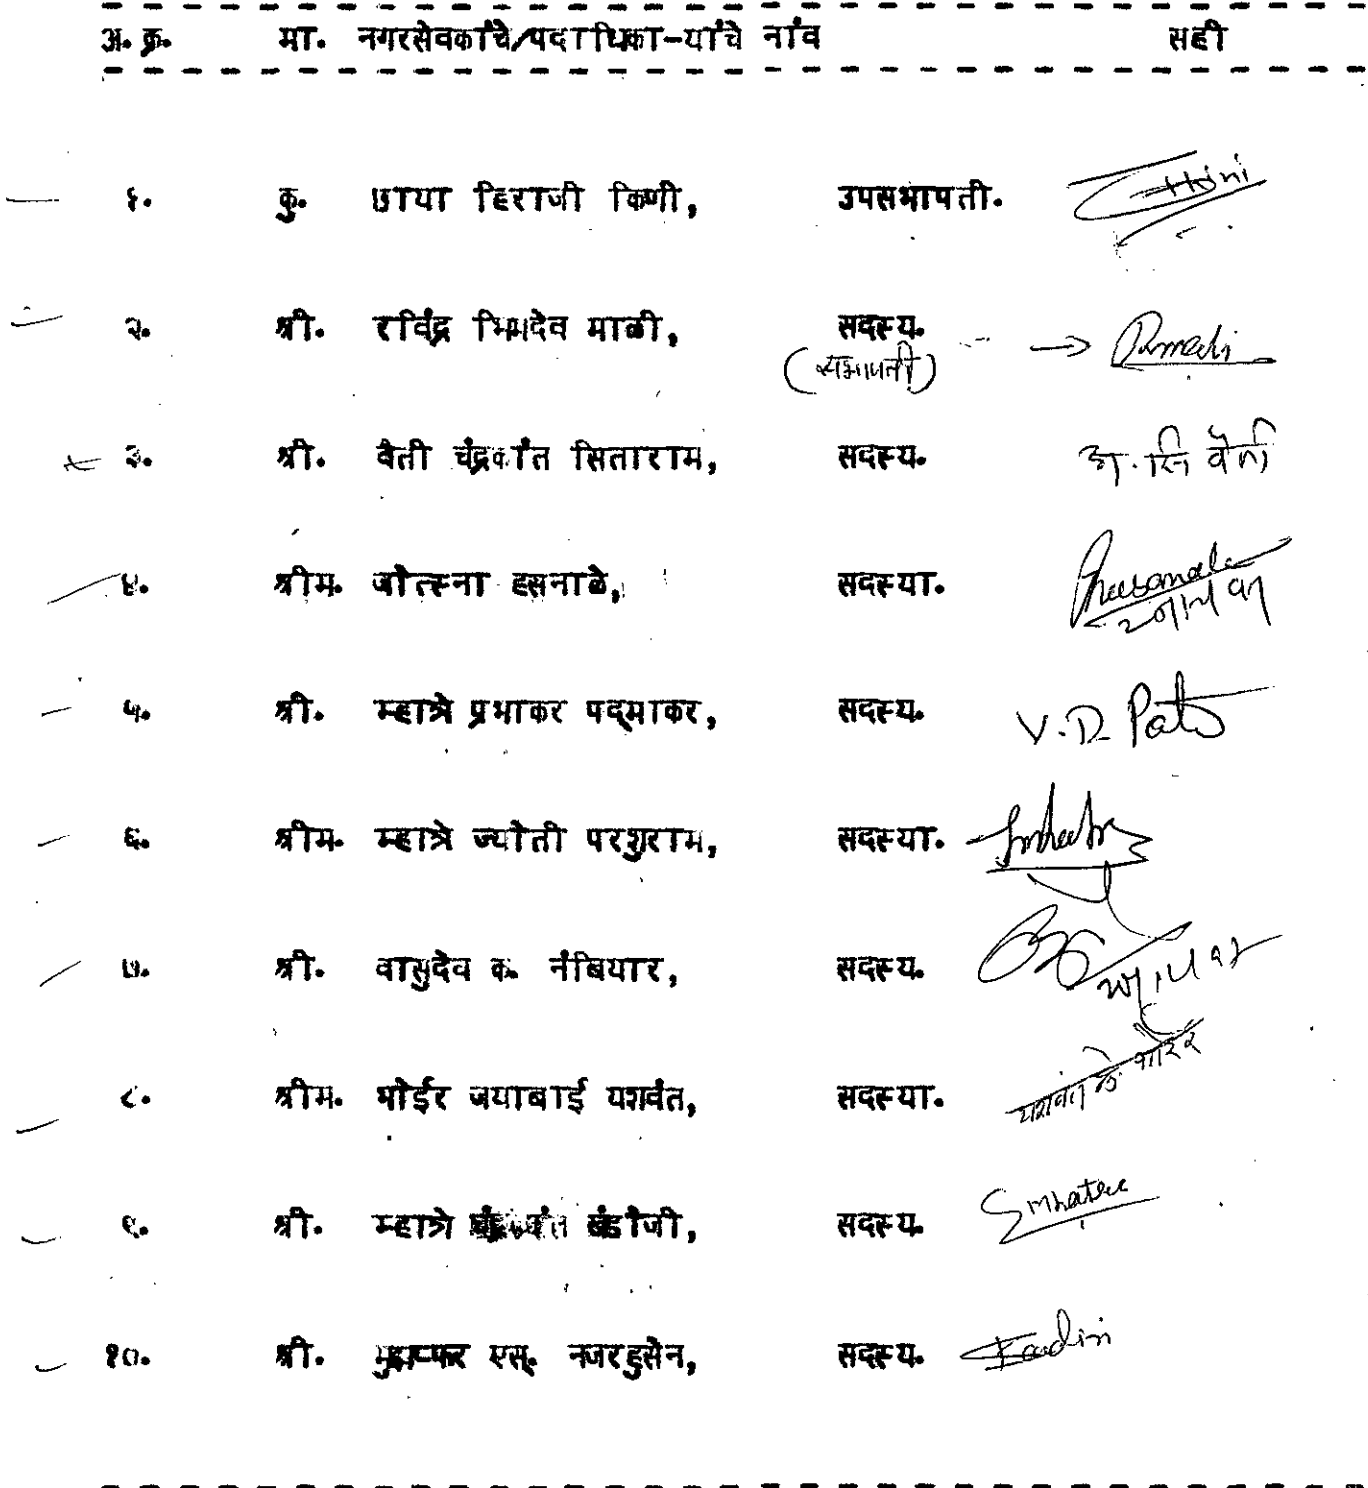 अ. क्र. मा. नगरसेवकांचे/पदाधिका-यांचे नांव सही
१. कु. छाया हिराजी किणी, उपसभापती.
२. श्री. रविंद्र भिमदेव माळी, सदस्य.
(सभापती)
३. श्री. वैती चंद्रकांत सिताराम, सदस्य.
४. श्रीम. जोत्स्ना हसनाळे, सदस्या.
५. श्री. म्हात्रे प्रभाकर पद्माकर, सदस्य. V.D. Patil
६. श्रीम. म्हात्रे ज्योती परशुराम, सदस्या.
७. श्री. वासुदेव क. नंबियार, सदस्य.
८. श्रीम. भोईर जयाबाई यशवंत, सदस्या.
९. श्री. म्हात्रे सदस्य. Smhatre
१०. श्री. मुझफ्फर एस्. नजरहुसेन, सदस्य.